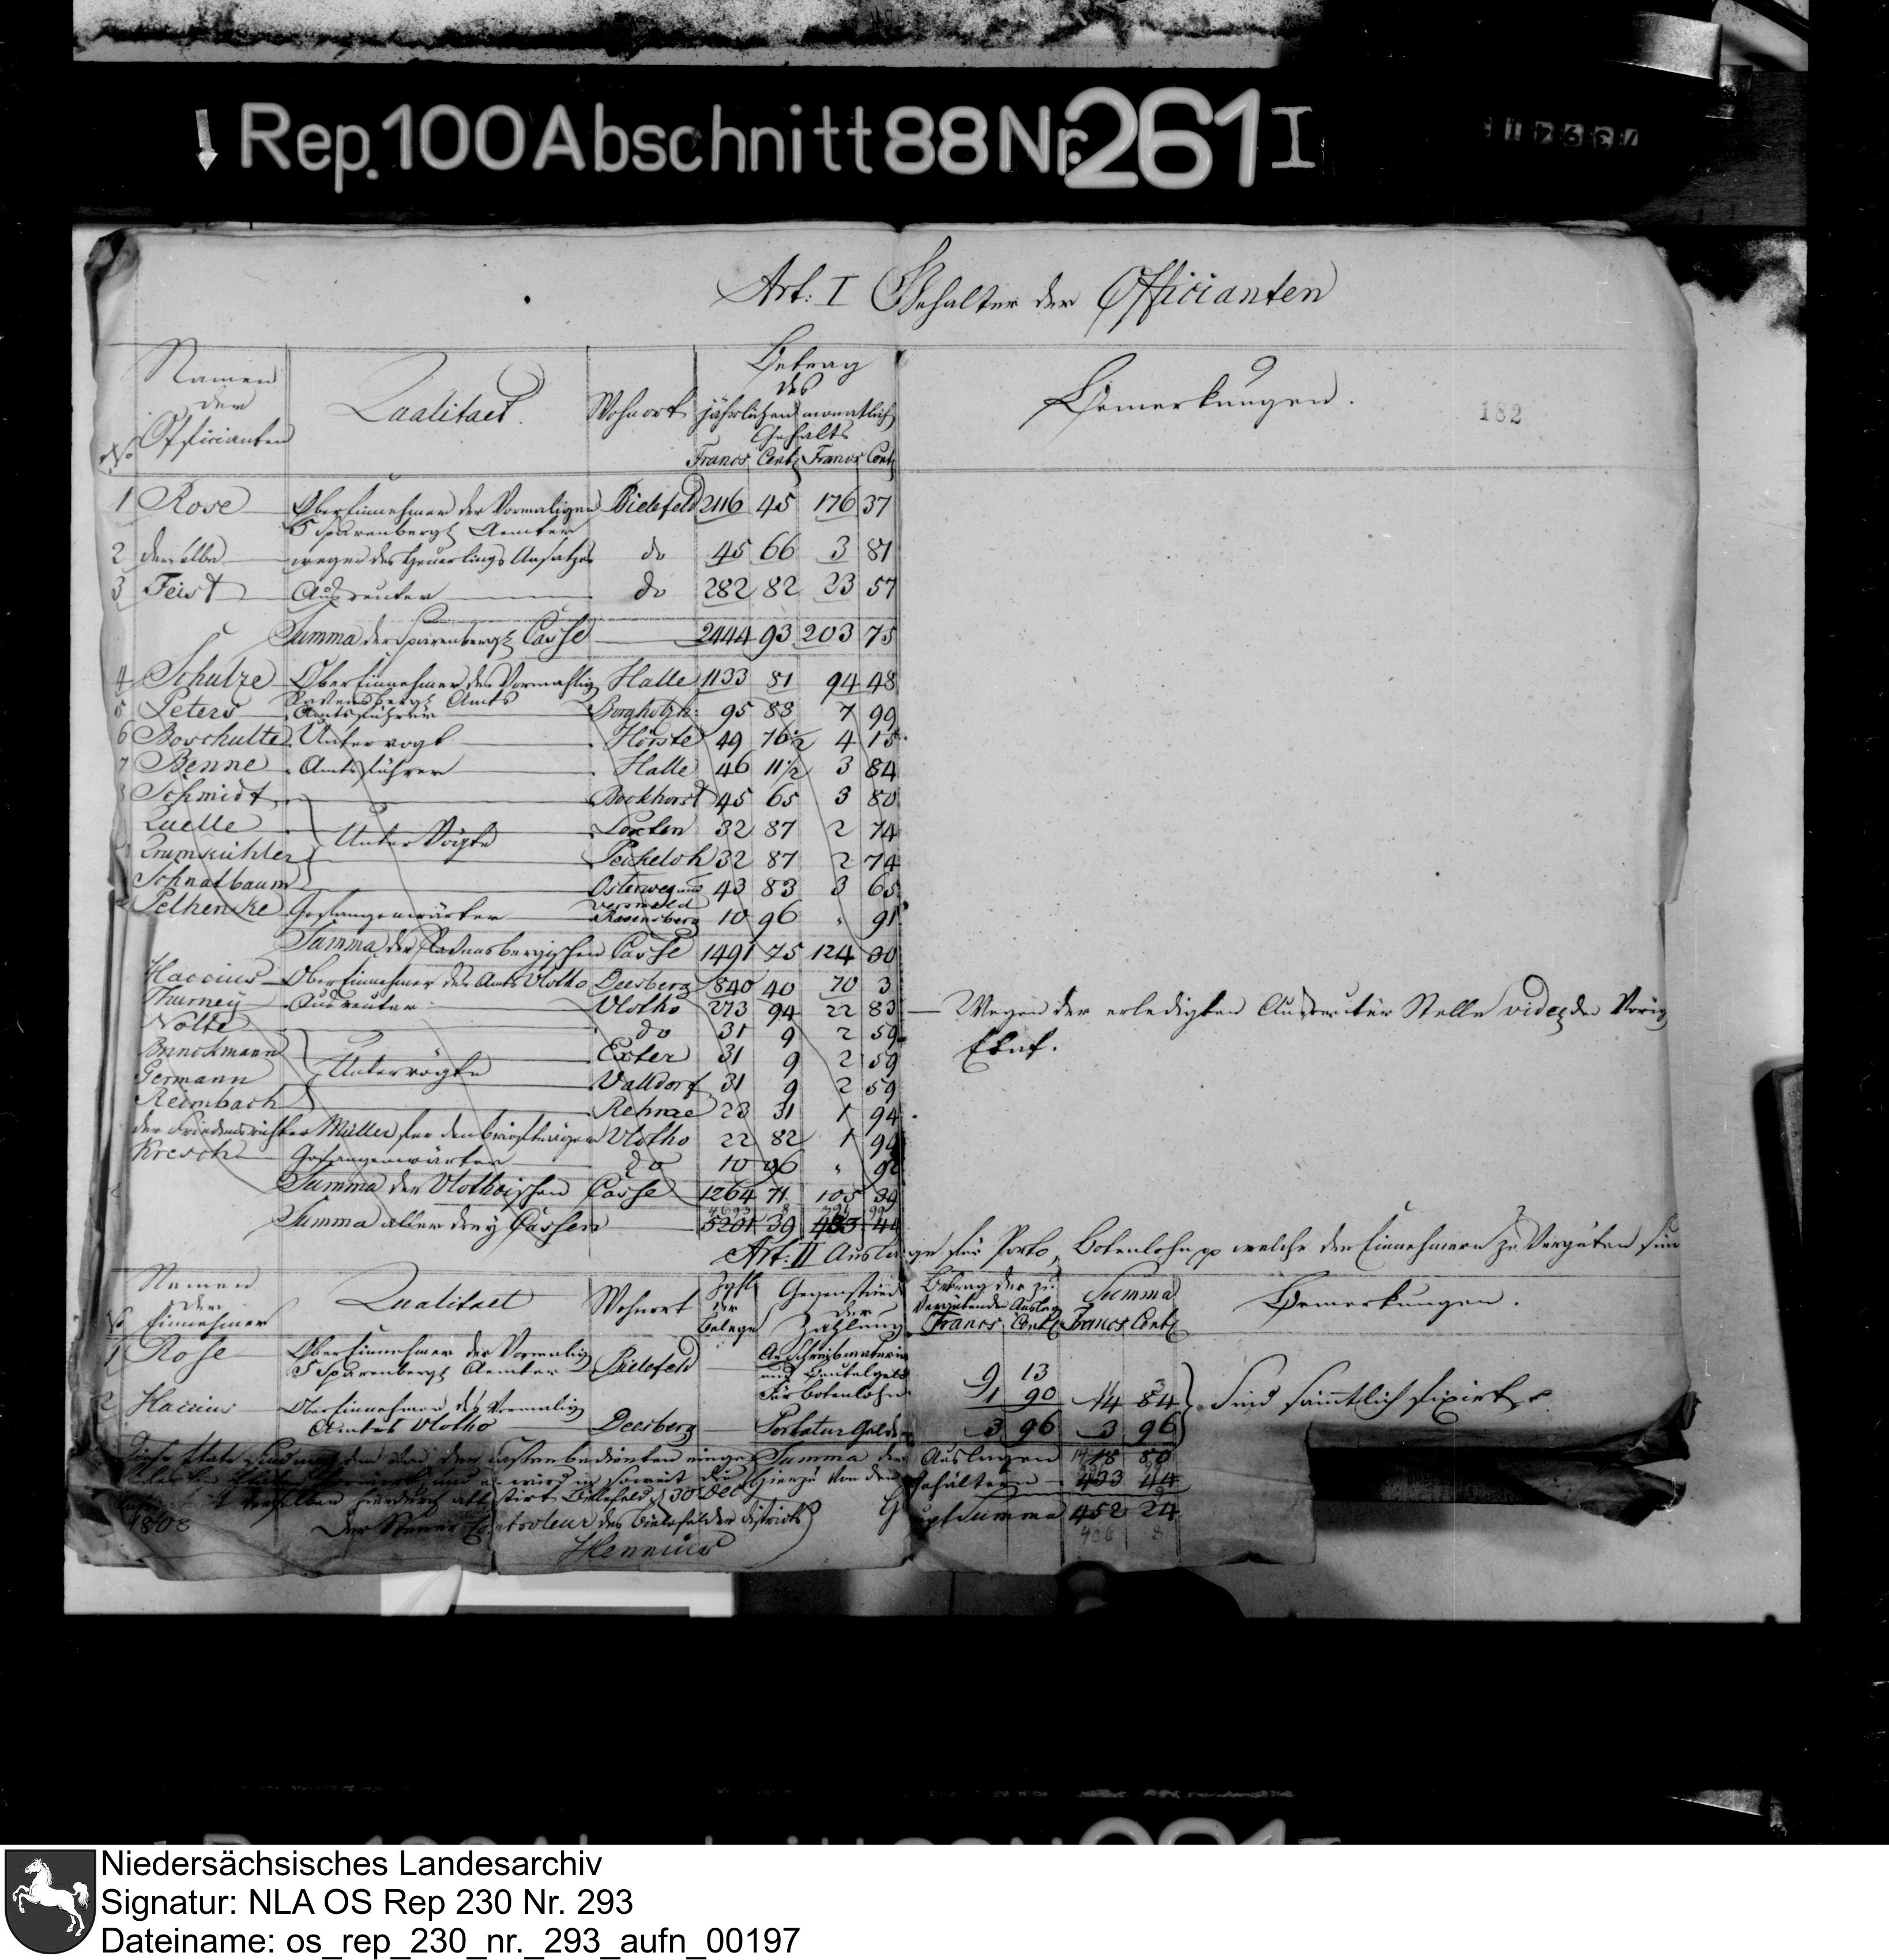 Rep. 100 Abschnitt 88 Nr. 261 I
Art: I Gehalter der Officianten
Namen der Officianten
No
Qualitaet.
Wohnort
Betrag des jährlichen monatlich Gehalts
Francs Cent Francs Cent
Bemerkungen.
182
1 Rose Ober Einnehmer der Vormaligen Bielefeld 2116 45 176 37
5 Sparenberg Aemter
2 derselbe wegen des Heuerlings Ansatzes do 45 66 3 81
3 Feist Ausreuter do 282 82 23 57
Summa der Sparenberg Casse 2444 93 203 75
4 Schulze Ober Einnehmer des Vormahlig Halle 1133 81 94 48
Ravensberg Amts
5 Peters Amtsführer Borgholzh: 95 88 7 99
6 Boschulte Untervogt Hörste 49 76½ 4 15
7 Benne Amtsführer Halle 46 11½ 3 84
8 Schmidt Bockhorst 45 65 3 80
Quelle Unter Vögte Loxten 32 87 2 74
Peckeloh 32 87 2 74
Schnatbaum Osterweg und Versmold 43 83 3 65
Gefangenwärter Ravensberg 10 96 " 91
Summa der Ravensbergischen Casse 1491 75 124 30
Haccius Ober Einnehmer des Amts Vlotho Deesberg 840 40 70 3
Thurney Ausreuter Vlotho 273 94 22 83 — Wegen der erledigten Ausreuter Stelle vide den Vorig
Etat.
Nolte do 31 9 2 59
Brinckmann Untervögte Exter 31 9 2 59
Germann Valldorf 31 9 2 59
Reimbach Rehme 23 31 1 94
der Friedensrichter Müller für den Vlotho 22 82 1 90
Kresch Gefangenwärter do 10 96 " 91
Summa der Vlothoischen Casse 1264 71 105 39
Summa aller drey Cassen 5201 39 433 44
Art: II Auslage für Porto, Botenlohn pp welche den Einnehmern zu Vergüten sind
No
Namen der Einnehmer
Qualitaet
Wohnort
Zahl der Belege
Gegenstand der Zahlung
Betrag der zu Vergütenden Auslage
Francs Cent
Summa
Francs Cent
Bemerkungen.
1 Rose Ober Einnehmer der Vormalig Bielefeld An Schreibmaterial
5 Sparenberg Aemter und Beutelgeld 9 13
Für Botenlohn 1 90 14 84 Sind sämtlich fixirt
2 Haccius Ober Einnehmer des Vormalig
Amtes Vlotho Deesberg Portatur Gelder 3 96 3 96
Summa der Auslagen 18 80
Gehältern 433 44
Hauptsumma 452 24
406 8
attestirt Bielefeld d 30 Dec
1808
Der Steuer Controleur des Bielefelder Districts
Hennius
Niedersächsisches Landesarchiv
Signatur: NLA OS Rep 230 Nr. 293
Dateiname: os_rep_230_nr._293_aufn_00197